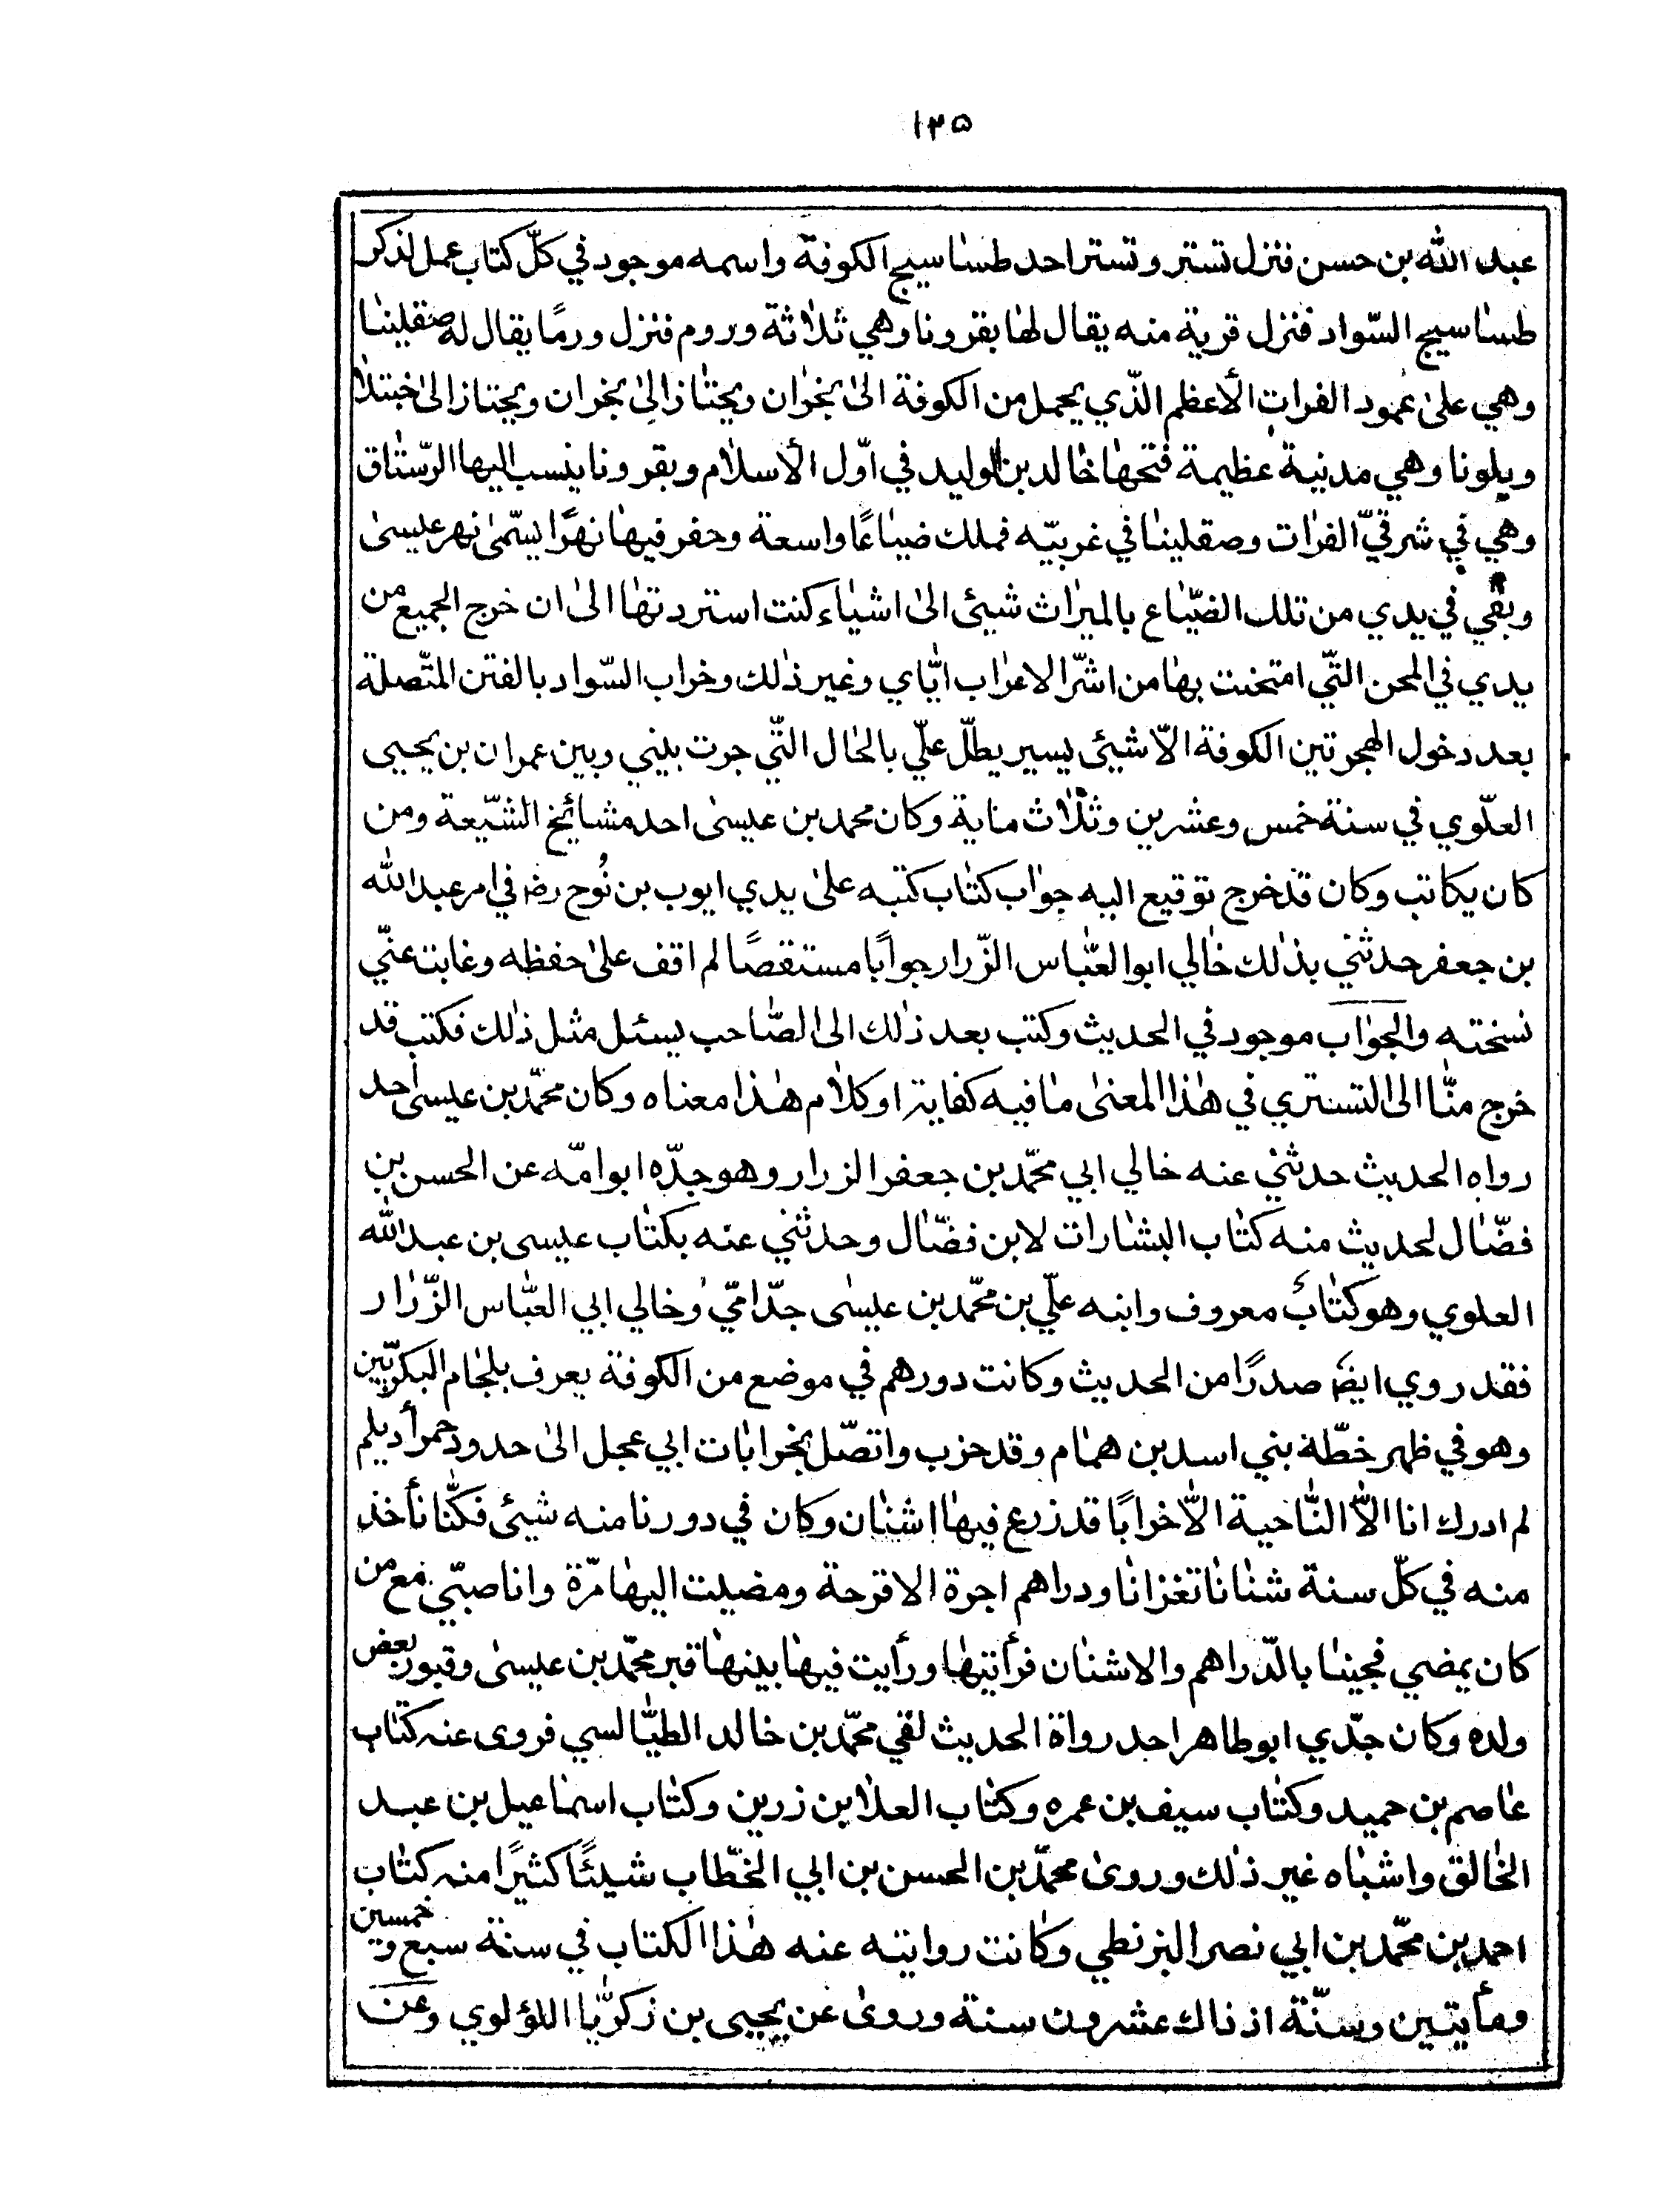 ١٣٥
عبد الله بن حسن فنزل تستر وتستر احد طساسيج الكوفة واسمه موجود في كلّ كتاب عمل لذكر
طساسيج السّواد فنزل قرية منه يقال لها بقرونا وهي ثلاثة وروم فنزل ورمًا يقال له صقلينا
وهي على عمود الفرات الأعظم الّذي يحمل من الكوفة الى نجران ويجتاز الى نجران ويجتاز الى خبتلا
ويلونا وهي مدنية عظيمة فتحها خالد بن الوليد في اوّل الأسلام وبقرونا ينسب اليها الرّستاق
وهي في شرقيّ الفرات وصقلينا في غربيّه فملك ضياعًا واسعة وحفر فيها نهرًا يسّمى نهر عليسى
وبقي في يدي من تلك الضّياع بالميراث شيئ الى اشياء كنت استردتها الى ان خرج الجميع من
يدي في المحن التّي امتحنت بها من اشرّ الاعراب ايّاي وغير ذلك وخراب السّواد بالفتن المتّصلة
بعد دخول الهجرتين الكوفة الّا شيئ يسير يطلّ علّي بالحال التّي جرت بيني وبين عمران بن يحيى
العلّوي في سنة خمس وعشرين وثلاث ماية وكان محمد بن عيسى احد مشائخ الشّيعة ومن
كان يكاتب وكان قد خرج توقيع اليه جواب كتاب كتبه على يدي ايوب بن نُوح رضه في امر عبد الله
بن جعفر حدثني بذلك خالي ابو العبّاس الزّرار جوابًا مستقصًا لم اقف على حفظه وغابت عنّي
نسخته والجواب موجود في الحديث وكتب بعد ذلك الى الصّاحب يسئل مثل ذلك فكتب قد
خرج منّا الى التستري في هذا المعنى ما فيه كفاية او كلام هذا معناه وكان محمّد بن عيسى احد
رواه الحديث حدثني عنه خالي ابي محمّد بن جعفر الزرار وهو جدّه ابو امّه عن الحسن بن
فضّال لحديث منه كتاب البشارات لابن فضّال وحدثني عنه بكتاب عيسى بن عبد الله
العلوي وهو كتابٌ معروف وابنه علّي بن محمّد بن عليسى جدّ امّي وخالي ابي العبّاس الزّرار
فقد روي ايضً صدرًا من الحديث وكانت دورهم في موضع من الكوفة يعرف بلجام البكريّين
وهو في ظهر خطّة بني اسد بن همام وقد خرب واتصّل بخرابات ابي عجل الى حدود حمرأ ديلم
لم ادرك انا الاّ النّاحية الاّ خرابًا قد زرع فيها اشنان وكان في دورنا منه شيئ فكنّا نأخذ
منه في كلّ سنة شنانا تغزانا ودراهم اجرة الاقرحة ومضيت اليها مرّة وانا صبّي مع من
كان يمضي فجينا بالدّراهم والاشنان فرأيتها ورأيت فيها بينها قبر محمّد بن عليسى وقبور بعض
ولده وكان جدّي ابو طاهر احد رواة الحديث لقي محمّد بن خالد الطيّالسي فروى عنه كتاب
عاصم بن حميد وكتاب سيف بن عمره وكتاب العلا بن زرين وكتاب اسماعيل بن عبد
الخالق واشباه غير ذلك وروى محمّد بن الحسن بن ابي الخطّاب شيئًا كثيرًا منه كتاب
احمد بن محمّد بن ابي نصر البزنطي وكانت روايته عنه هذا الكتاب في سنة سبع وخمسين
ومأيتين وسنّة اذ ذاك عشرون سنة وروى عن يحيى بن زكريّا اللؤلوي وعن